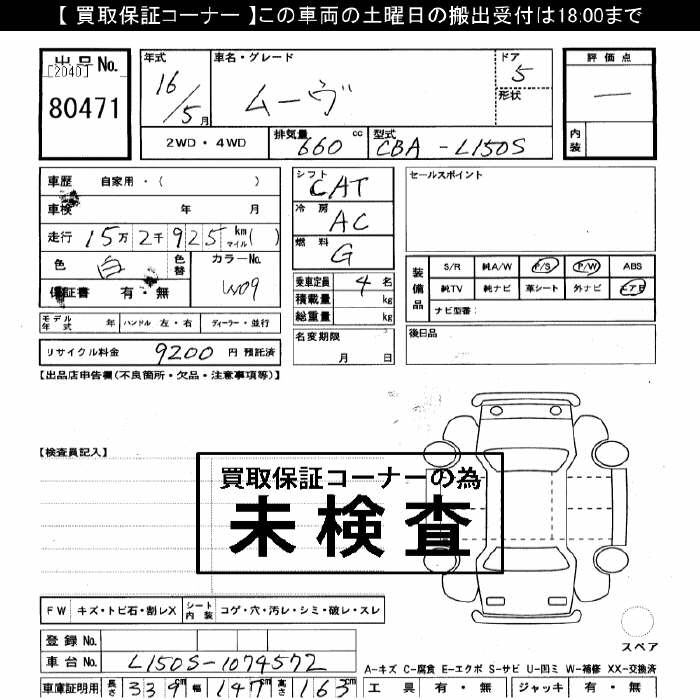 【 買取保証コーナー 】この車両の土曜日の搬出受付は18:00まで
出品No.
[2040]
80471
年式 車名・グレード ドア 5
16/5月 ムーヴ 形状
2WD・4WD 排気量 660 cc 型式 CBA-L150S
評価点
—
内装
車歴 自家用・( )
車検 年 月
走行 15万2千925 km マイル ( )
色 白 色替 カラーNo.
保証書 有・無 W09
シフト CAT
冷房 AC
燃料 G
乗車定員 4 名
積載量 kg
総重量 kg
セールスポイント
装備品 S/R 純A/W P/S P/W ABS
純TV 純ナビ 革シート 外ナビ エアB
ナビ型番:
モデル年式 年 ハンドル 左・右 ディーラー・並行
名変期限 月 日
後日品
リサイクル料金 9200 円 預託済
【出品店申告欄(不良箇所・欠品・注意事項等)】
【検査員記入】
買取保証コーナーの為
未検査
FW キズ・トビ石・割レX シート内装 コゲ・穴・汚レ・シミ・破レ・スレ
スペア
登録No.
車台No. L150S-1074572
A-キズ C-腐食 E-エクボ S-サビ U-凹ミ W-補修 XX-交換済
車庫証明用 長さ 339cm 幅 147cm 高さ 163cm
工具 有・無 ジャッキ 有・無